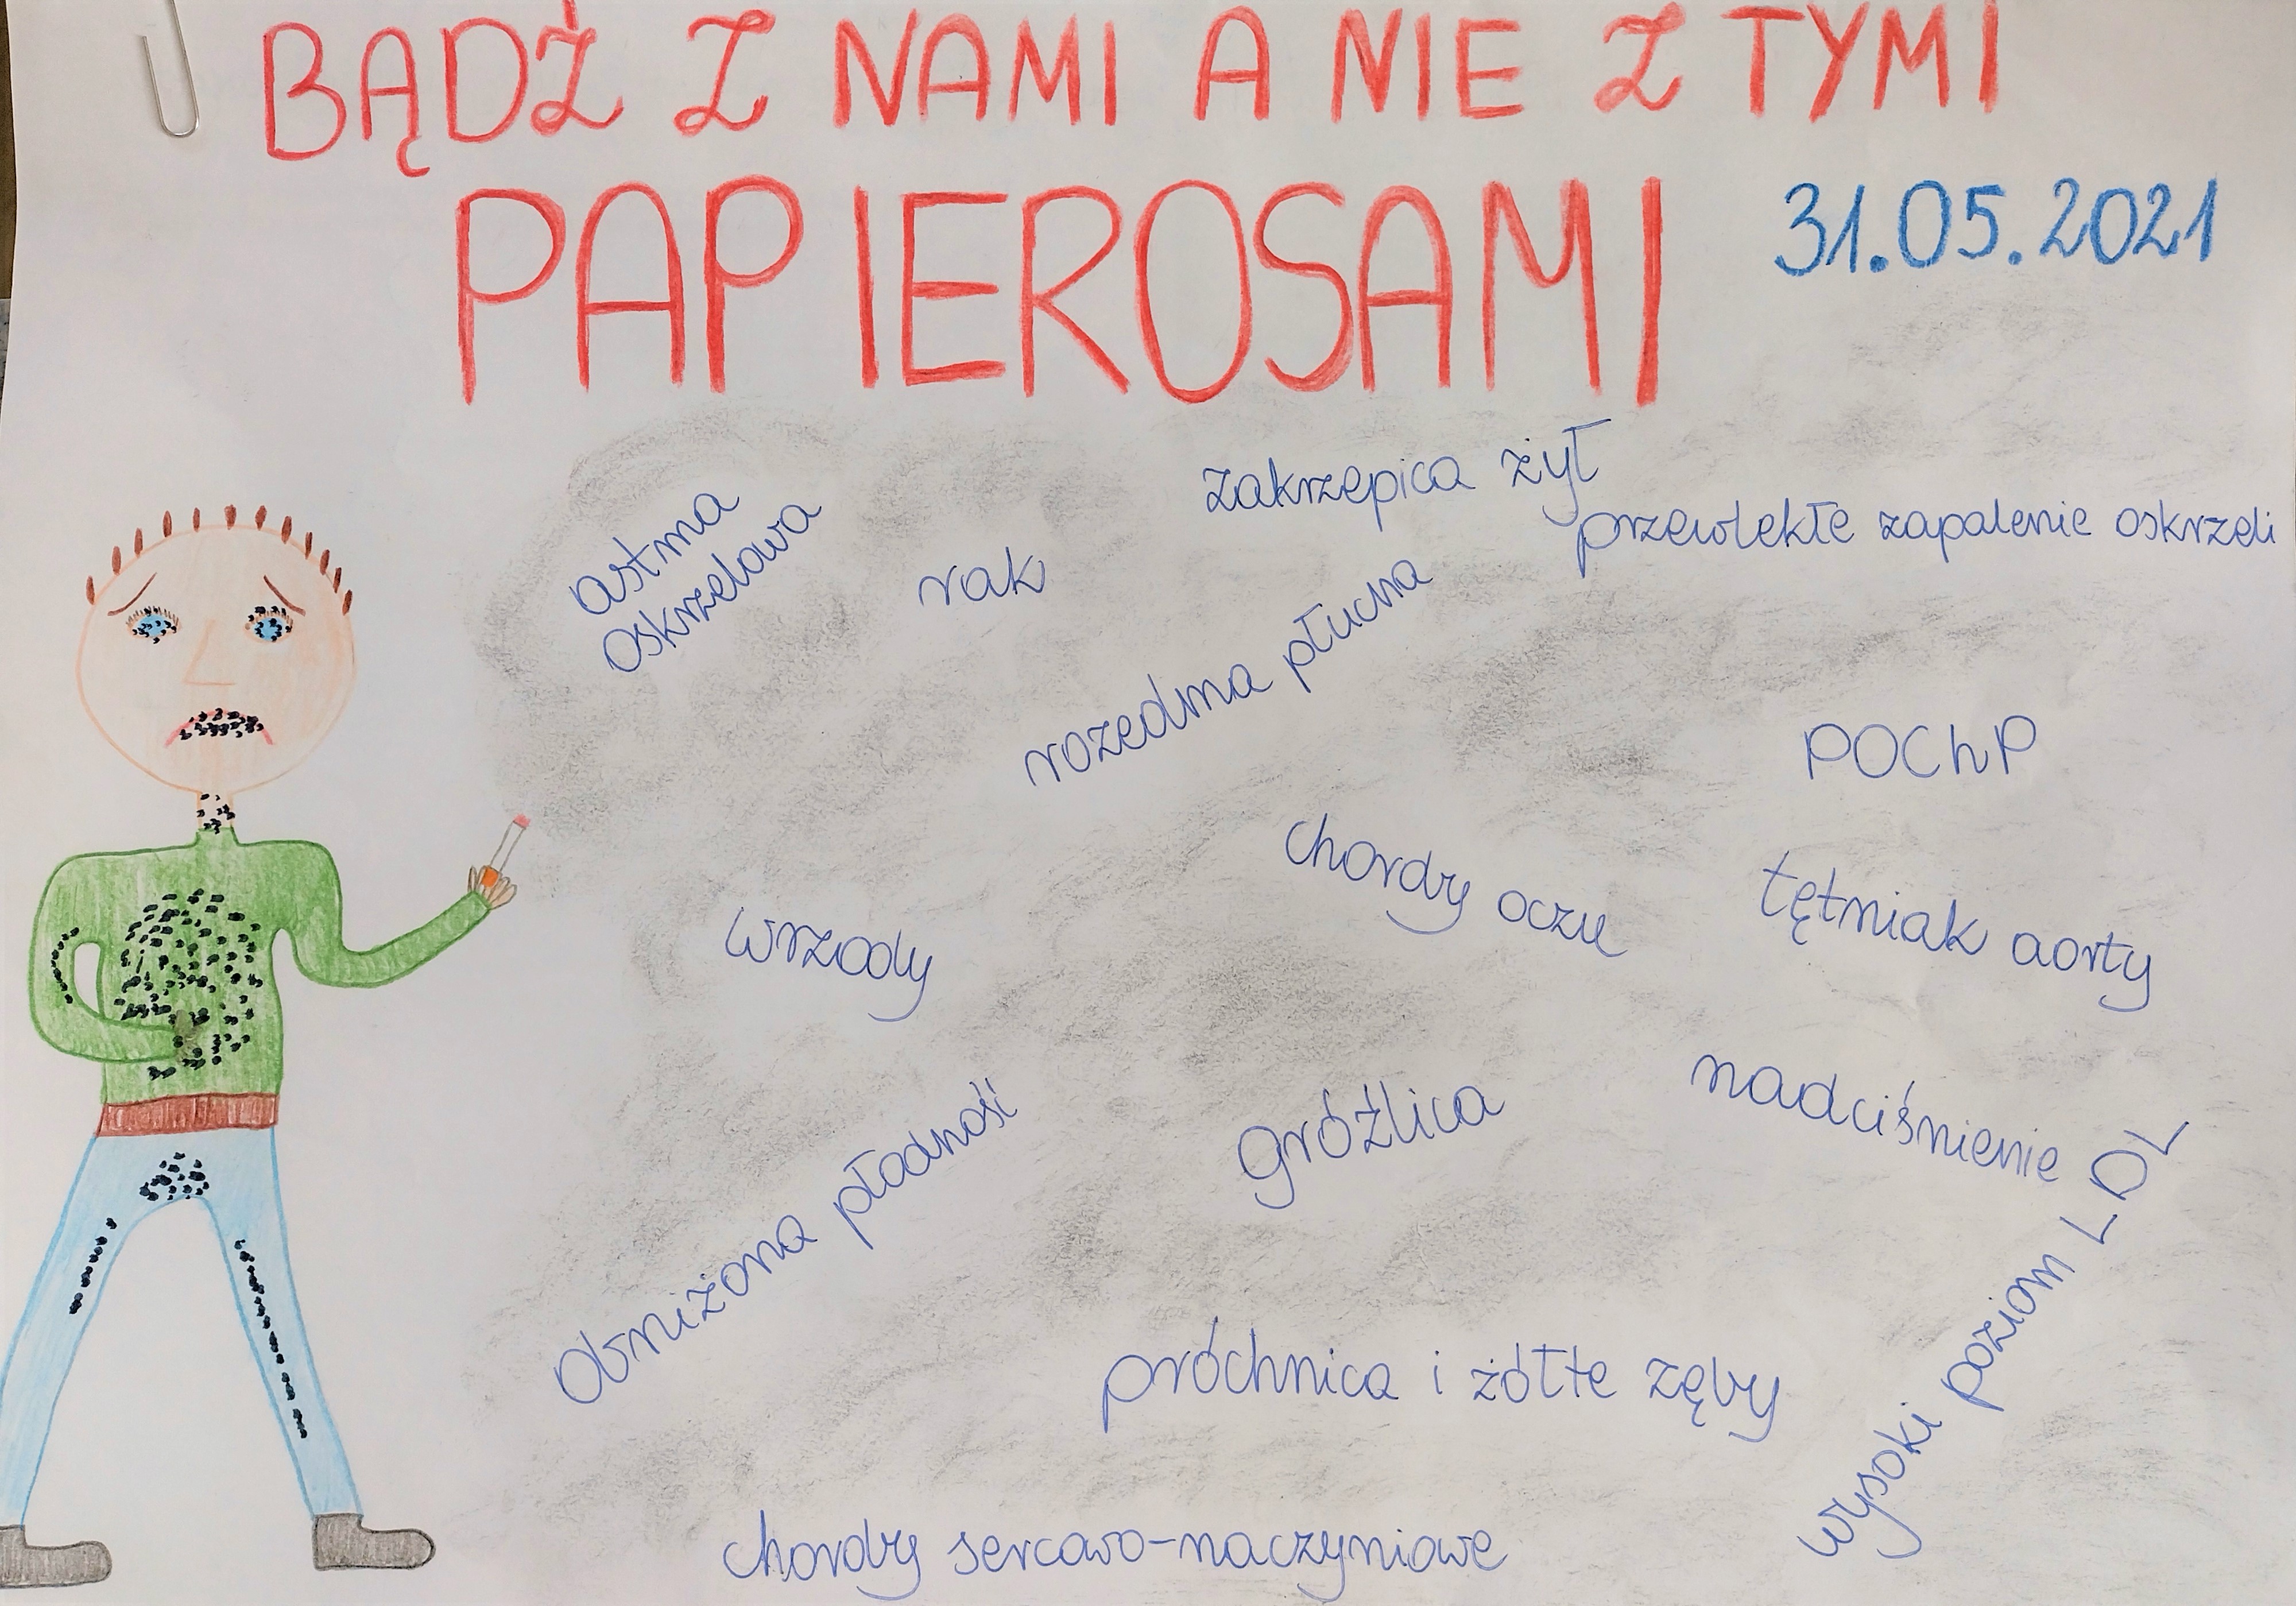 BĄDŹ Z NAMI A NIE Z TYMI
PAPIEROSAMI
31.05.2021
astma
oskrzelowa
rak
zakrzepica żył
przewlekłe zapalenie oskrzeli
rozedma płucna
POChP
wrzody
chordy oczu
tętniak aorty
Obniżona płodność
gróźlica
nadciśnienie
wysoki poziom LDL
próchnica i żółte zęby
chordy sercowo-naczyniowe